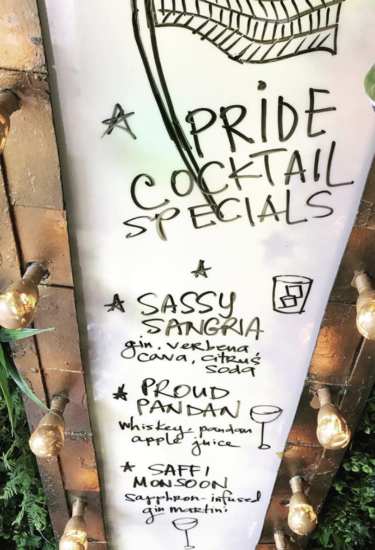 PRIDE
COCKTAIL
SPECIALS
SASSY
SANGRIA
gin, verbena
cava, citrus
soda
PROUD
PANDAN
whiskey-pandan
apple juice
SAFFI
MONSOON
sapphron-infused
gin martini